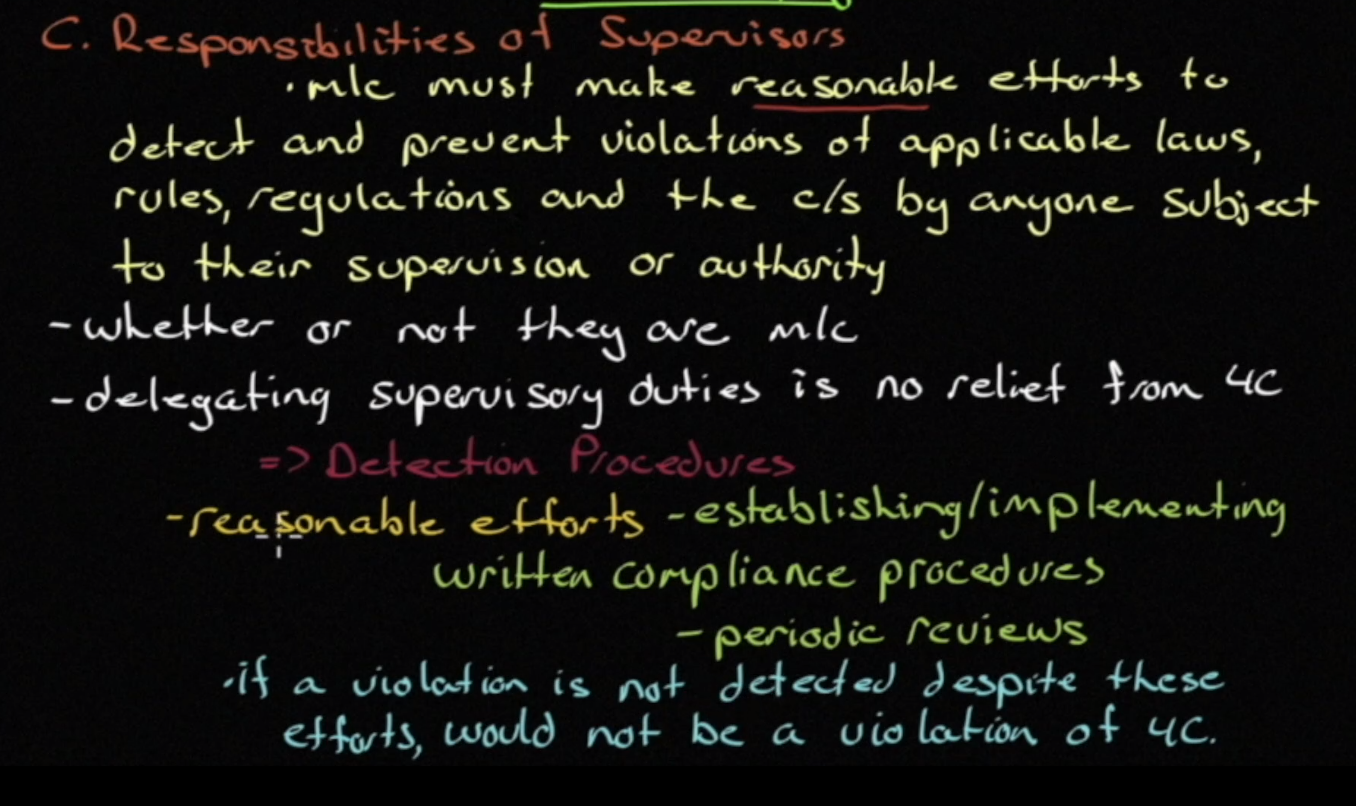 C. Responsibilities of Supervisors
· mlc must make reasonable efforts to
detect and prevent violations of applicable laws,
rules, regulations and the c/s by anyone subject
to their supervision or authority
- whether or not they are mlc
- delegating supervisory duties is no relief from 4C
=> Detection Procedures
- reasonable efforts - establishing/implementing
written compliance procedures
- periodic reviews
· if a violation is not detected despite these
efforts, would not be a violation of 4C.